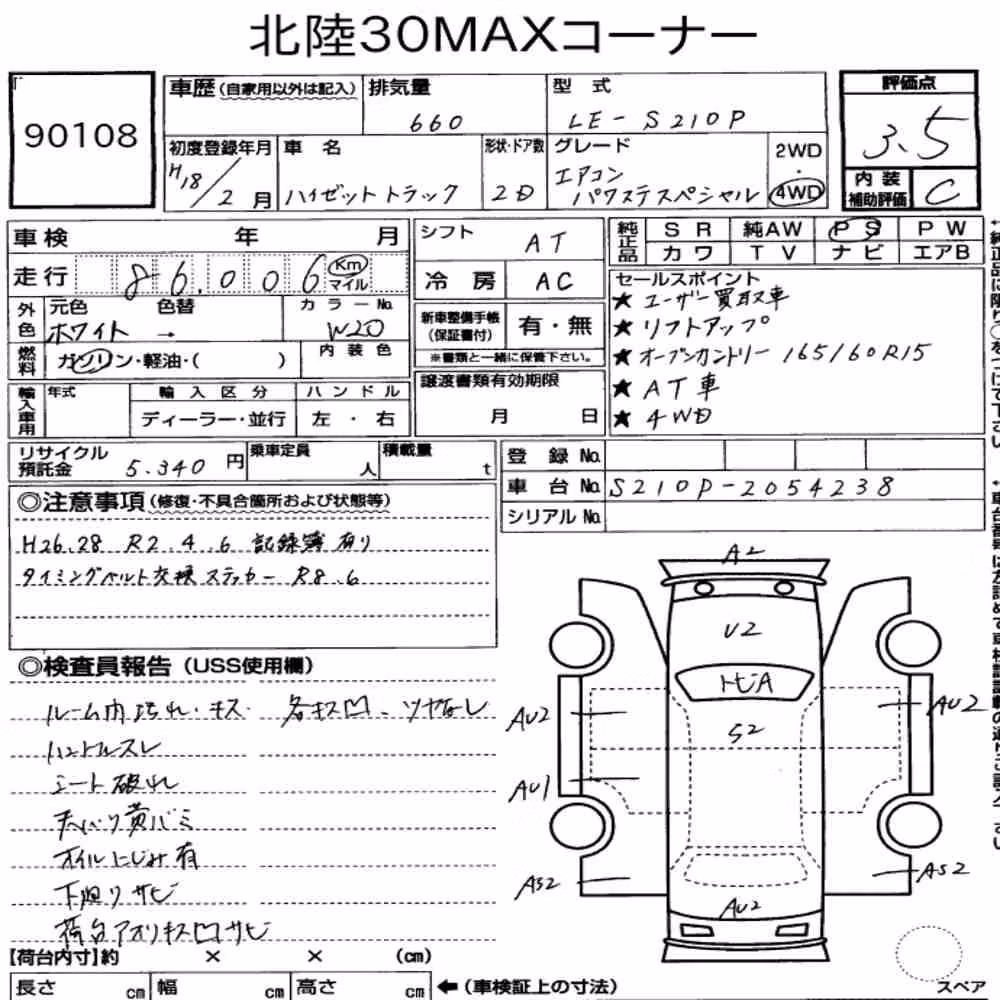 北陸30MAXコーナー
90108
車歴(自家用以外は記入)
排気量
660
型 式
LE-S210P
評価点
3.5
内装補助評価
C
初度登録年月
H18/2月
車 名
ハイゼットトラック
形状・ドア数
2D
グレード
エアコン
パワステスペシャル
2WD
・
4WD
車検 年 月
走行 86.006 Km
マイル
外色
元色 色替 カラーNo.
ホワイト → W20
燃料
ガソリン・軽油・( )
内装色
輸入車用
年式
輸入区分
ディーラー・並行
ハンドル
左 ・ 右
シフト
AT
冷 房
AC
新車整備手帳
(保証書付)
有・無
※書類と一緒に保管下さい。
譲渡書類有効期限
月 日
純正品
SR 純AW PS PW
カワ TV ナビ エアB
セールスポイント
★ ユーザー買取車
★ リフトアップ
★ オープンカントリー 165/60R15
★ AT車
★ 4WD
リサイクル
預託金
5.340円
乗車定員
人
積載量
t
登 録 No.
車 台 No. S210P-2054238
シリアル No.
◎注意事項(修復・不具合箇所および状態等)
H26.28 R2.4.6 記録簿有り
タイミングベルト交換ステッカー R8.6
◎検査員報告(USS使用欄)
ルーム内汚れ・キズ 各キズ凹、ツヤなし
ハンドルスレ
シート破れ
天バリ黄バミ
オイルにじみ有
下廻りサビ
荷台アオリキズ凹サビ
【荷台内寸】約 × × (cm)
長さ cm
幅 cm
高さ cm
←(車検証上の寸法)
A2
U2
トビA
S2
AU2
AU2
AU1
AS2
AS2
AU2
スペア